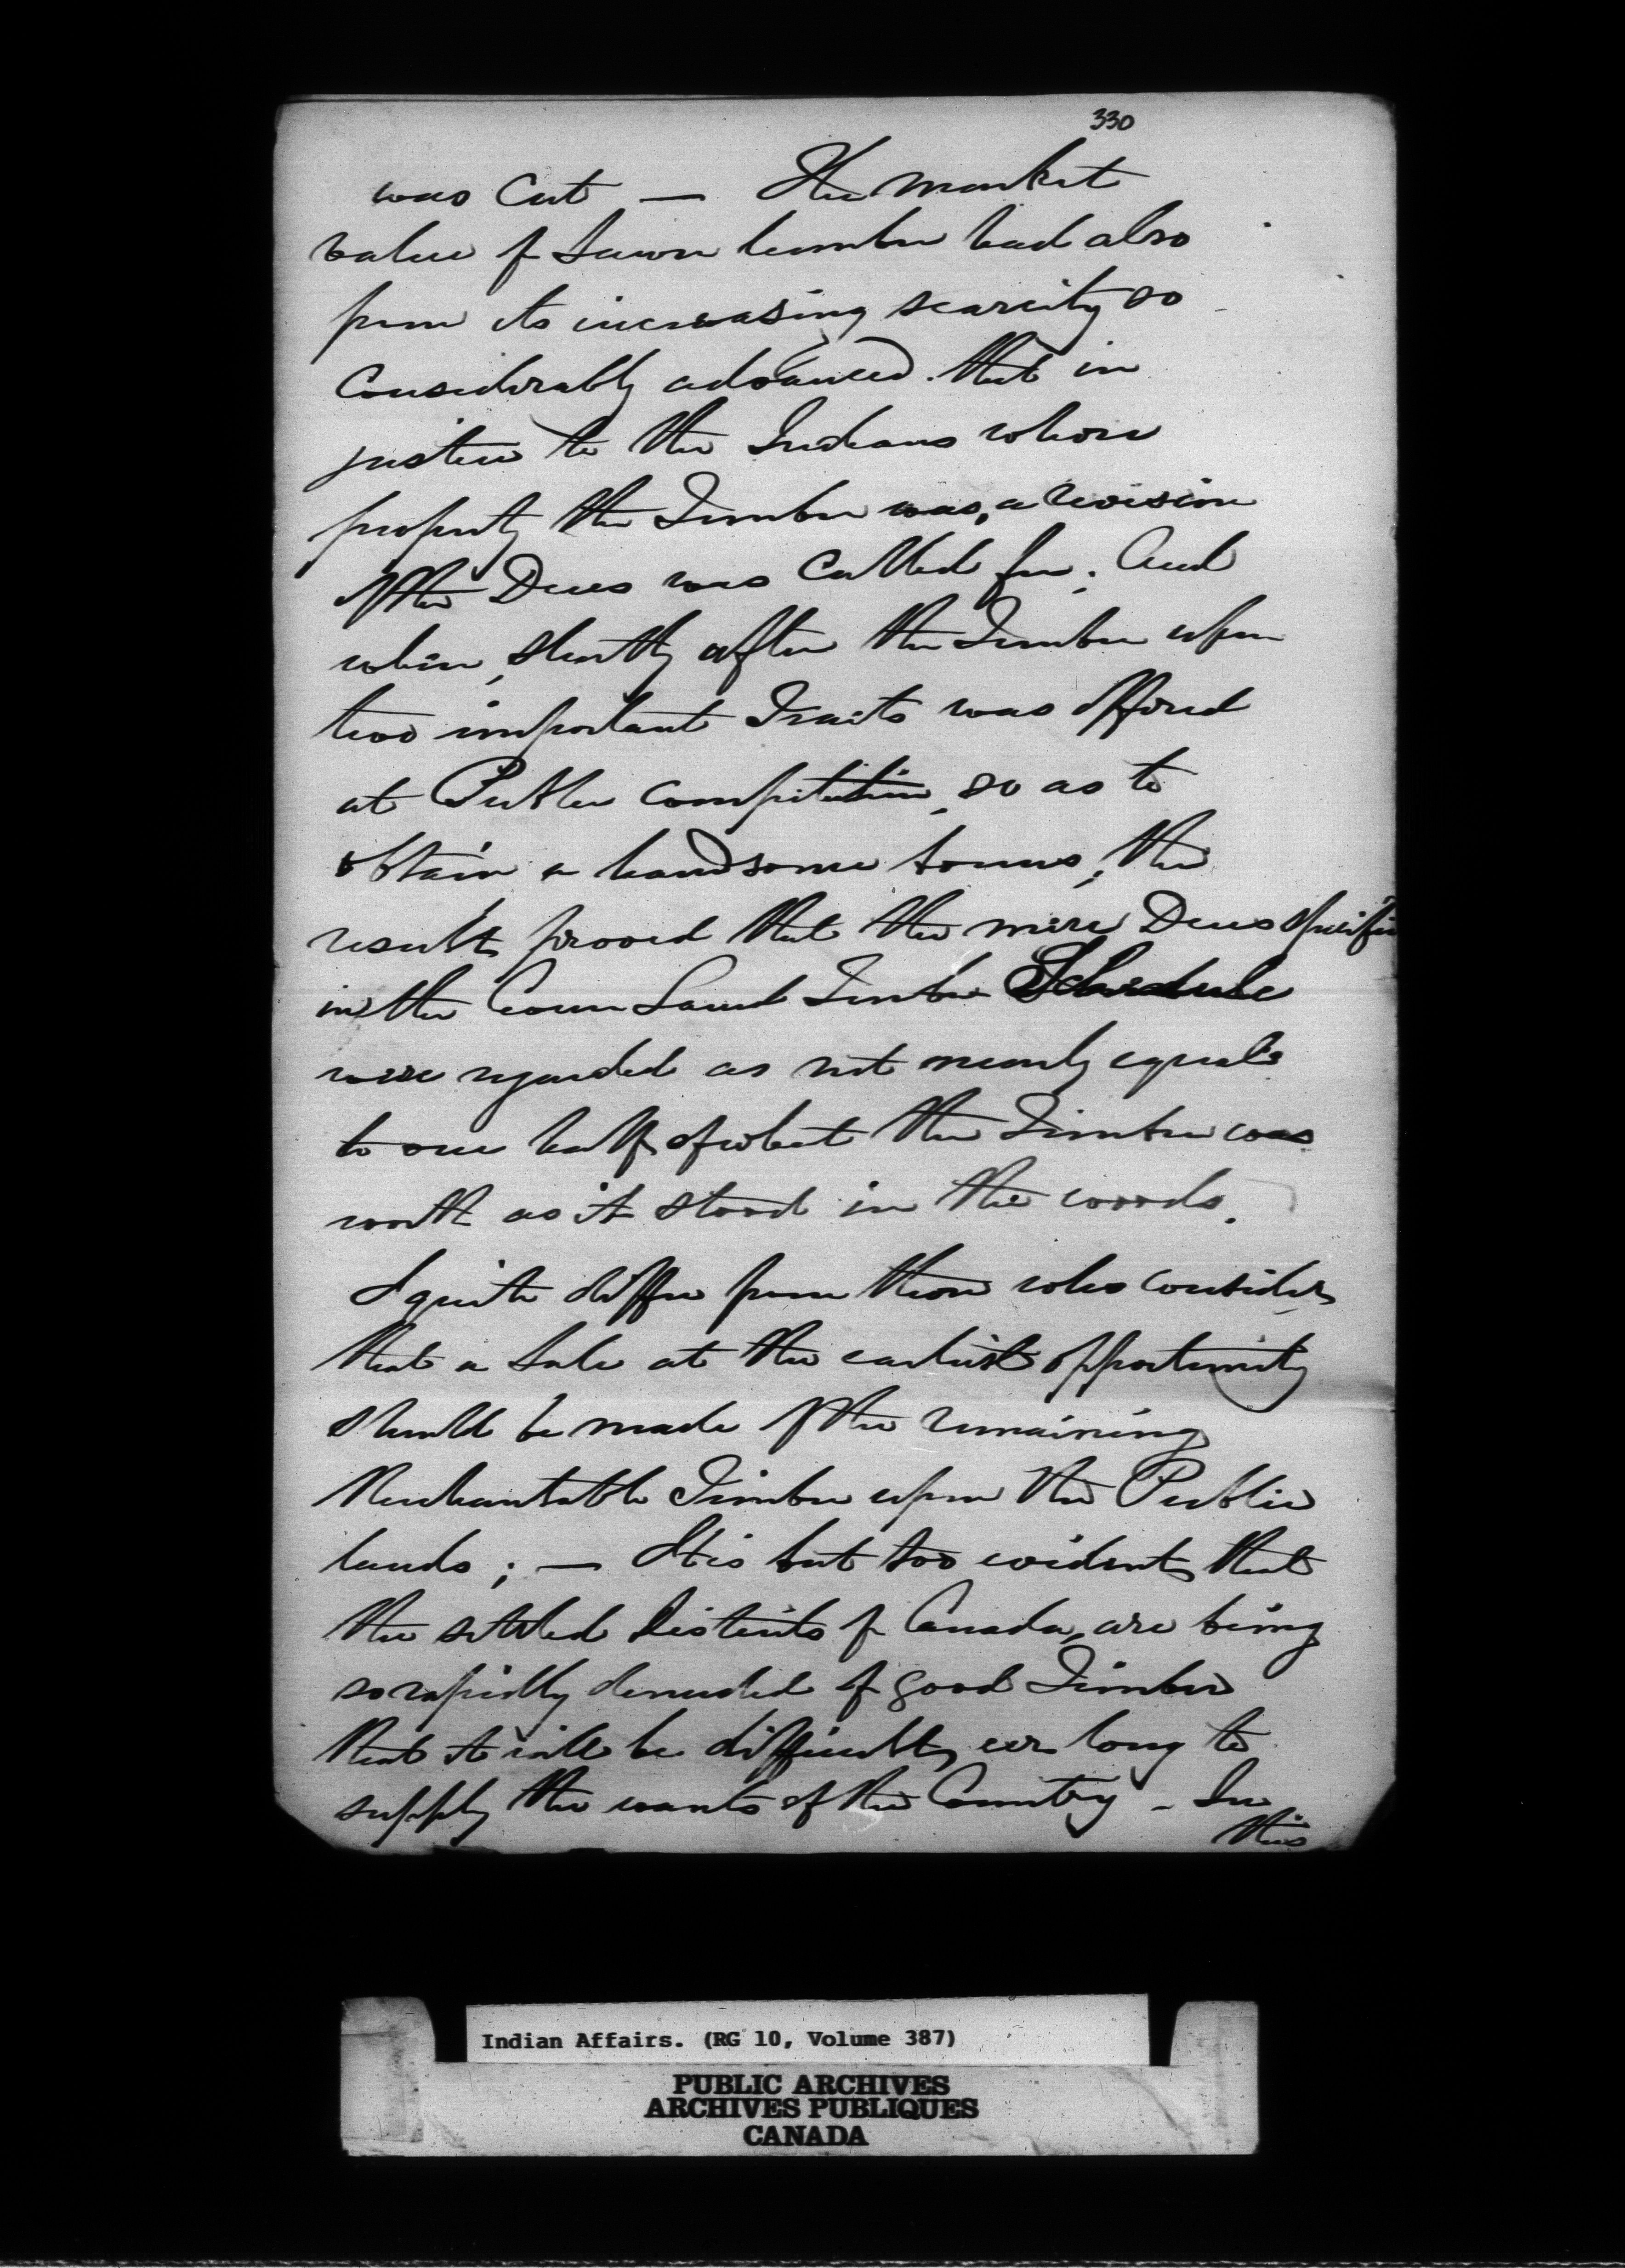 330
was Cut — The market
value of Sawn lumber had also
from its increasing scarcity so
Considerably advanced that in
justice to the Indians whose
property the Timber was, a revision
of the Dues was Called for; And
when, shortly after the Timber upon
two important Tracts was offered
at Public Competition, so as to
obtain a handsome bonus, the
result proved that the mere Dues specified
in the Crown Land Timber Schedule
were regarded as not nearly equal
to one half of what the Timber was
worth as it stood in the woods.
I quite differ from those who consider
that a Sale at the earliest opportunity
should be made of the remaining
Merchantable Timber upon the Public
lands; — It is but too evident that
the settled Districts of Canada, are being
so rapidly denuded of good Timber
that it will be difficult, ere long to
supply the wants of the Country — In
this
Indian Affairs. (RG 10, Volume 387)
PUBLIC ARCHIVES
ARCHIVES PUBLIQUES
CANADA